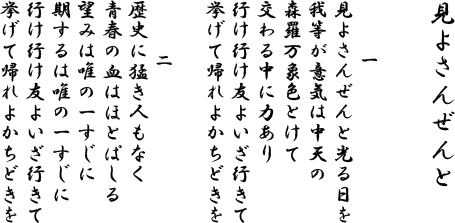 見よさんぜんと
一
見よさんぜんと光る日を
我等が意気は中天の
森羅万象色とけて
交わる中に力あり
行け行け友よいざ行きて
挙げて帰れよかちどきを
二
歴史に猛き人もなく
青春の血はほとばしる
望みは唯の一すじに
期するは唯の一すじに
行け行け友よいざ行きて
挙げて帰れよかちどきを